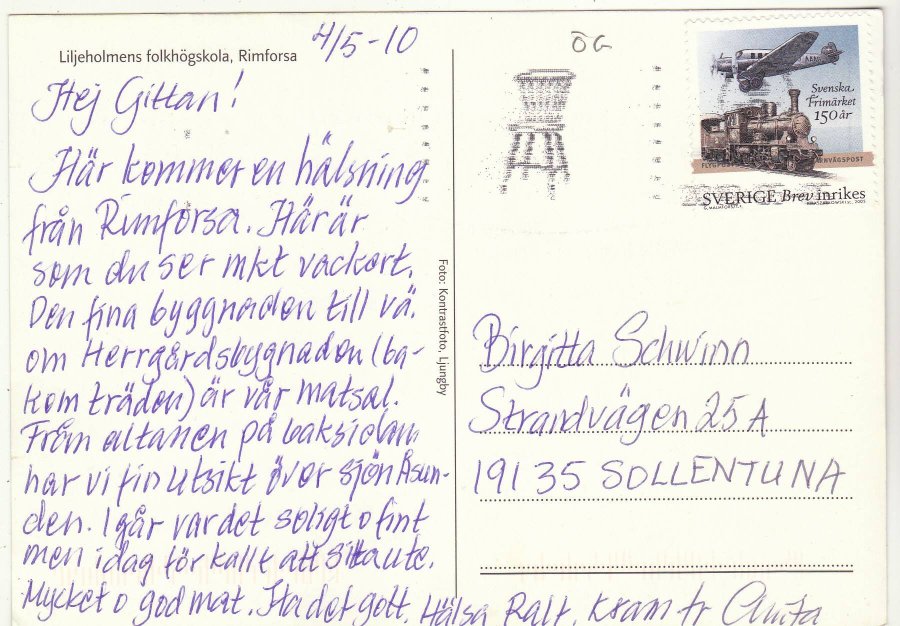 Liljeholmens folkhögskola, Rimforsa
4/5-10
Hej Gittan!
Här kommer en hälsning
från Rimforsa. Här är
som du ser mkt vackert.
Den fina byggnaden till vä.
om Herrgårdsbygnaden (ba-
kom träden) är vår matsal.
Från altanen på baksidan
har vi fin utsikt över sjön Åsun-
den. Igår var det soligt o fint
men idag för kallt att sitta ute.
Mycket o god mat. Ha det gott. Hälsa Ralf. Kram fr Anita
Foto: Kontrastfoto, Ljungby
ÖG
Svenska
Frimärket
150 år
JÄRNVÄGSPOST
SVERIGE Brev inrikes
Birgitta Schwinn
Strandvägen 25 A
191 35 SOLLENTUNA